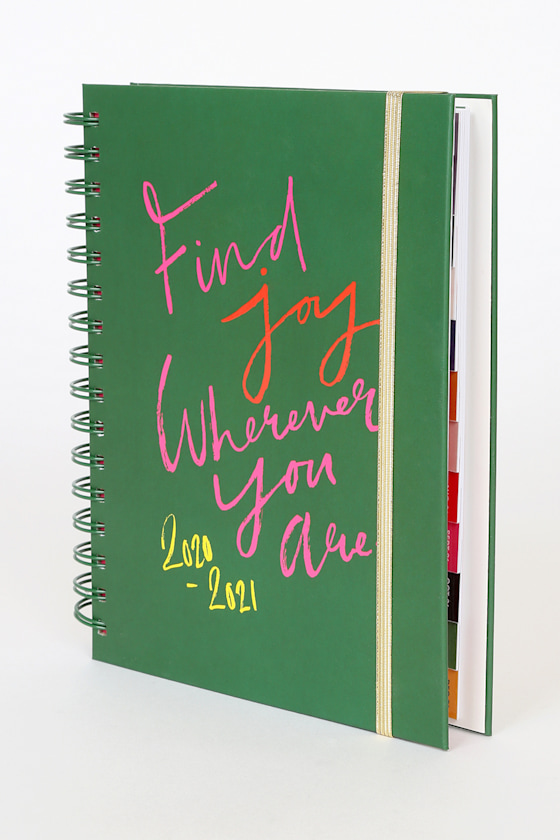 Find
joy
Wherever
You
are
2020
- 2021